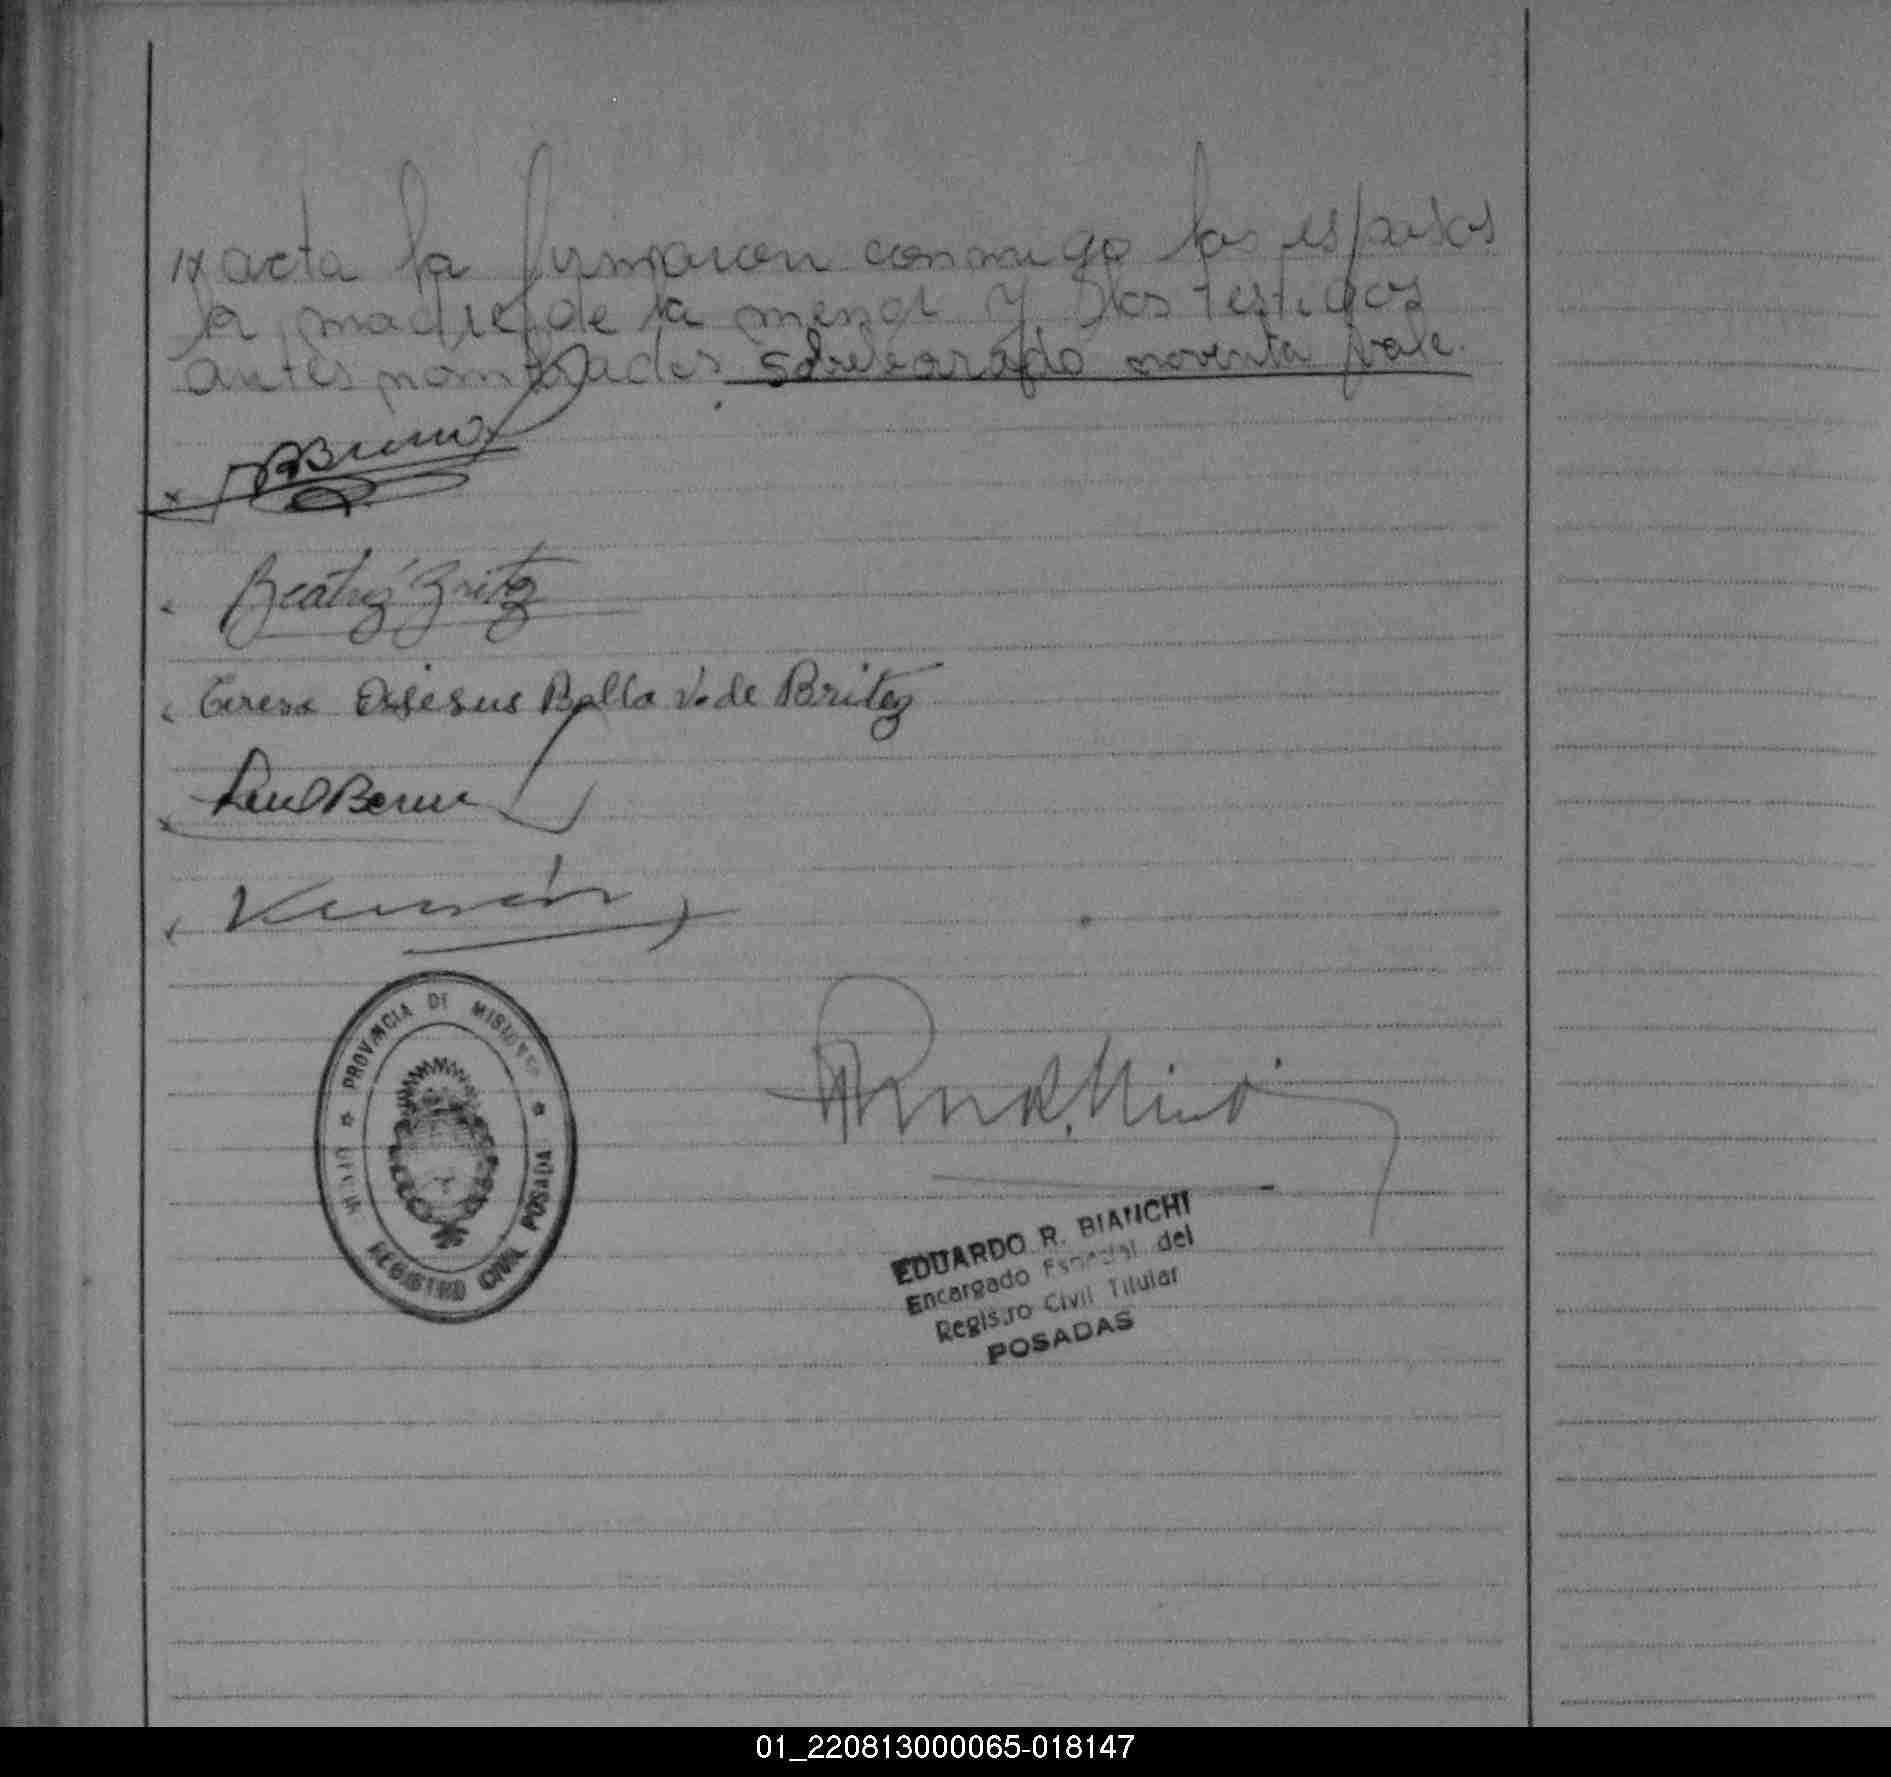 acta la firmaron conmigo los esposos
la madre de la menor y los testigos
antes nombrados sobreborrado noventa vale.
Beatriz Britez
Teresa Dejesus Balla V. de Britez
PROVINCIA DE MISIONES
REGISTRO CIVIL POSADA
EDUARDO R. BIANCHI
Encargado Especial del
Registro Civil Titular
POSADAS
01_220813000065-018147